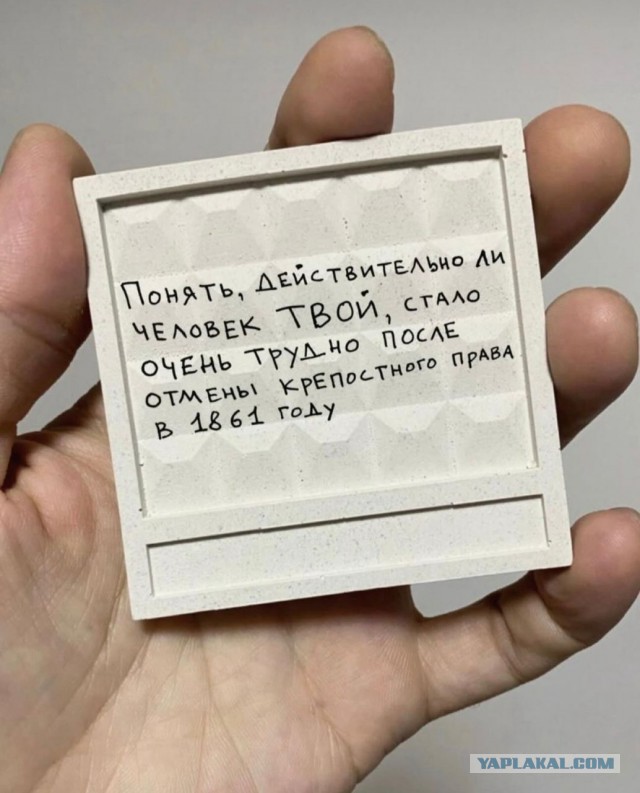 Понять, действительно ли
человек ТВОЙ, стало
очень трудно после
отмены крепостного права
в 1861 году
YAPLAKAL.COM